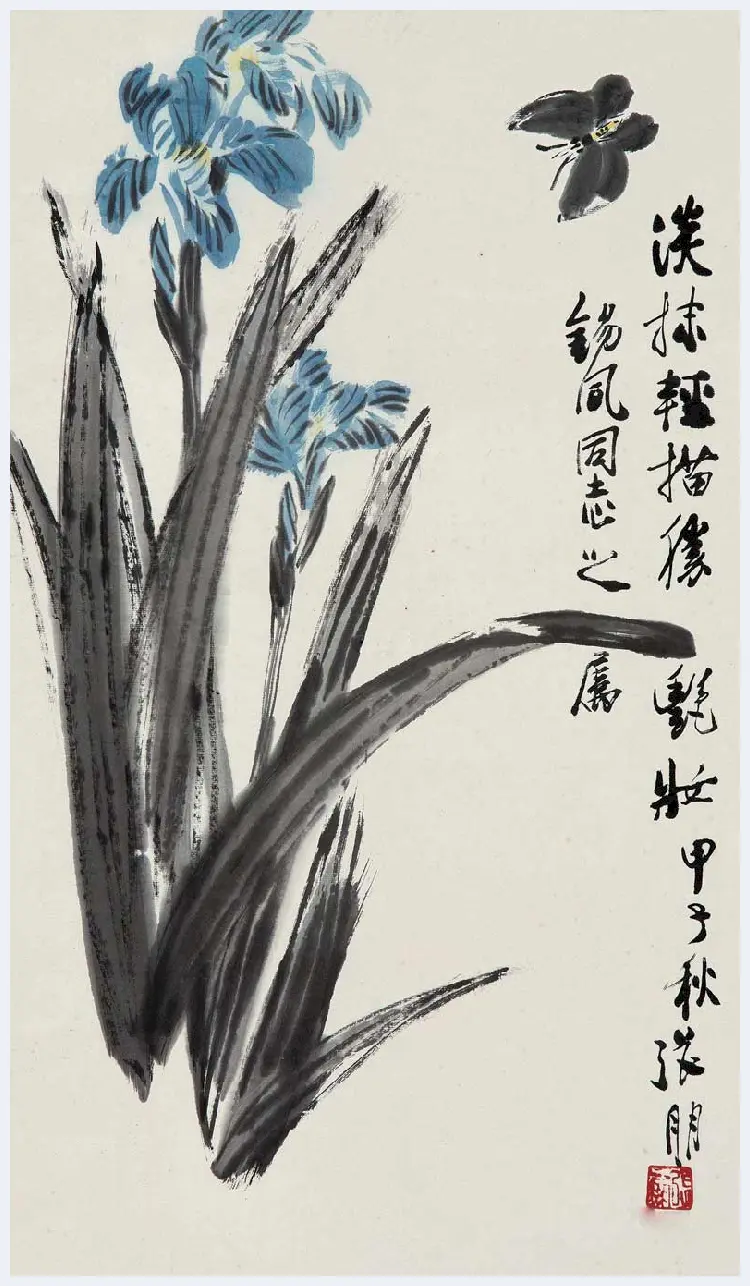 淡抹輕描勝艷妝甲子秋張朋
錫鳳同志之屬